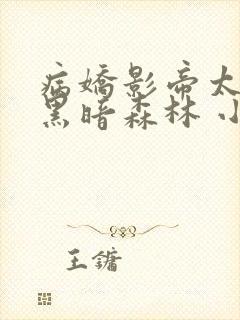 病嬌影帝太
黑暗森林 小
王鏞